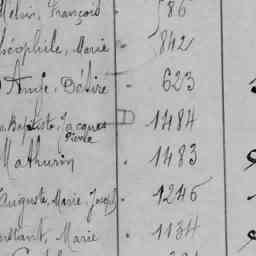 Melin, François 586
Théophile, Marie 842
Aimé, Désiré 623
Baptiste, Jacques 1484
Pierre
Mathurin 1483
Auguste, Marie, Joseph 1246
Constant, Marie 1134